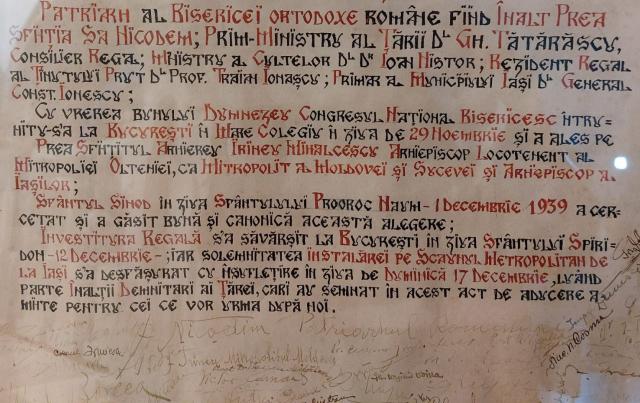 Patriarh al Bisericei ortodoxe române fiind Înalt Prea
Sfinția Sa Nicodem; Prim-Ministru al Țării Dl. Gh. Tătărăscu,
Consilier Regal; Ministru al Cultelor Dl. Dr. Ioan Nistor; Rezident Regal
al Ținutului Prut Dl. Prof. Traian Ionașcu; Primar al Municipiului Iași Dl. General
Const. Ionescu;
Cu vrerea bunului Dumnezeu Congresul Național Bisericesc întru-
nitu-s'a la București în Mare Colegiu în ziua de 29 Noembrie și a ales pe
Prea Sfințitul Arhiereu Irineu Mihalcescu Arhiepiscop Locotenent al
Mitropoliei Olteniei, ca Mitropolit a Moldovei și Sucevei și Arhiepiscop a
Iașilor;
Sfântul Sinod în ziua Sfântului Prooroc Naum - 1 Decembrie 1939 a cer-
cetat și a găsit bună și canonică această alegere;
Investitura Regală s'a săvârșit la București în ziua Sfântului Spiri-
don - 12 Decembrie - ; iar solemnitatea instalărei pe Scaunul Metropolitan de
la Iași s'a desfășurat cu însuflețire în ziua de Duminică 17 Decembrie, luând
parte Înalții Demnitari ai Țărei, cari au semnat în acest act de aducere a-
minte pentru cei ce vor urma după noi.
Nicodim Patriarhul
Irineu Mitropolitul Moldovei